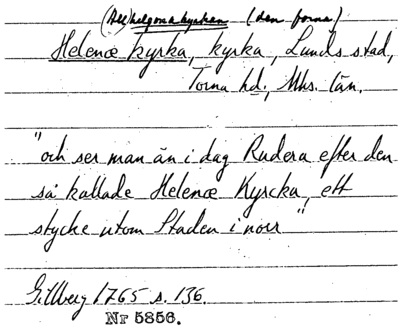 (All)helgonakyrkan (den forna)
Helenæ kyrka, kyrka, Lunds stad,
Torna hd, Mhs. län.
"och ser man än i dag Rudera efter den
så kallade Helenæ Kyrcka, ett
stycke utom Staden i norr"
Gillberg 1765 s. 136.
Nr 5856.